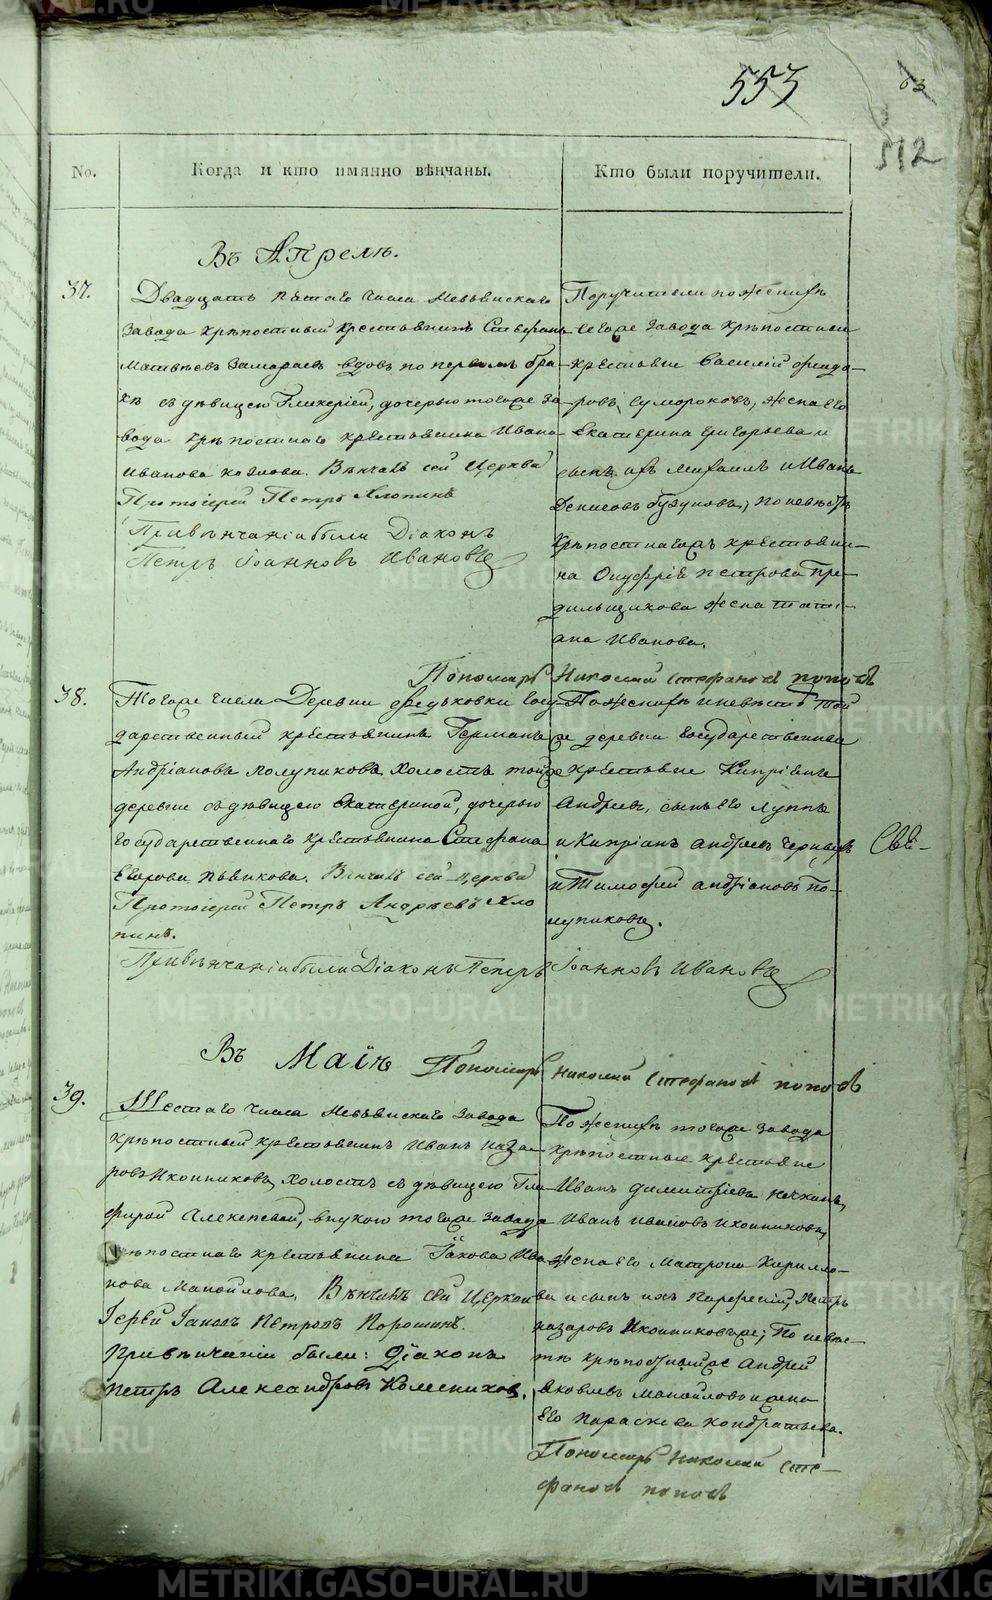 553
63
512
No.
Когда и кто имянно вѣнчаны.
Кто были поручители.
Въ Апрелѣ.
37.
Двадцать пятаго числа Невьянскаго
завода крѣпостный крестьянинъ Стефанъ
Матвѣевъ вдовъ по первомъ бра-
кѣ съ дѣвицею Гликеріей, дочерью тогоже за-
вода крѣпостнаго крестьянина Ивана
Иванова Козлова. Вѣнчалъ сей Церкви
Протоіерей Петръ Хлопинъ
При вѣнчаніи были Діаконъ
Петръ Іоанновъ Ивановъ
Поручители по женихѣ
завода крѣпостные
крестьяне Василій Ѳедо-
ровъ Сумороковъ, жена его
Екатерина Григорьева и
сынъ ихъ Михаилъ и Иванъ
Денисовъ по невѣстѣ
крѣпостнагожъ крестьяни-
на Онуфрія Петрова Пре-
дильщикова жена Татi-
ана Иванова.
Пономарь Николай Стефановъ Поповъ
38.
Тогоже числа Деревни Ѳедьковки Госу-
дарственный крестьянинъ Германъ
Андріановъ Полупиковъ холостъ тойже
деревни съ дѣвицею Екатериной, дочерью
Государственнаго крестьянина Стефана
Егорова Пьянкова. Вѣнчалъ сей церкви
Протоіерей Петръ Андреевъ Хло
пинъ.
При вѣнчаніи были Діаконъ Петръ Іоанновъ Ивановъ
По женихѣ и невѣстѣ той
же деревни Государственные
крестьяне Кипріянъ
Андреевъ, сынъ его Луппъ
и Кипріанъ Андреевъ
и Тимофей Андріановъ По-
лупиковъ.
Свѣ-
Въ Маіѣ
Пономарь Николай Стефановъ Поповъ
39.
Шестаго числа Невьянскаго завода
крѣпостный крестьянинъ Иванъ Наза-
ровъ Иконниковъ, холостъ съ дѣвицею Гла-
фирой Алексеевой, внукою тогоже завода
крѣпостнаго крестьянина Іакова Ива
нова Манойлова. Вѣнчалъ сей Церкви
Іерей Іаковъ Петровъ Порошинъ.
При вѣнчаніи были: Діаконъ
Петръ Александровъ Колесниковъ.
По женихѣ тогоже завода
крѣпостные крестьяне
Иванъ Димитріевъ
Иванъ Ивановъ Иконниковъ,
жена его Матрона Кирилло-
ва и сынъ ихъ Парфеній, Петръ
Назаровъ Иконниковъ же; По невѣс-
тѣ крѣпостный же Андрей
Яковлевъ Манойловъ и жена
его Параскева Кондратьева.
Пономарь Николай Сте-
фановъ Поповъ
METRIKI.GASO-URAL.RU